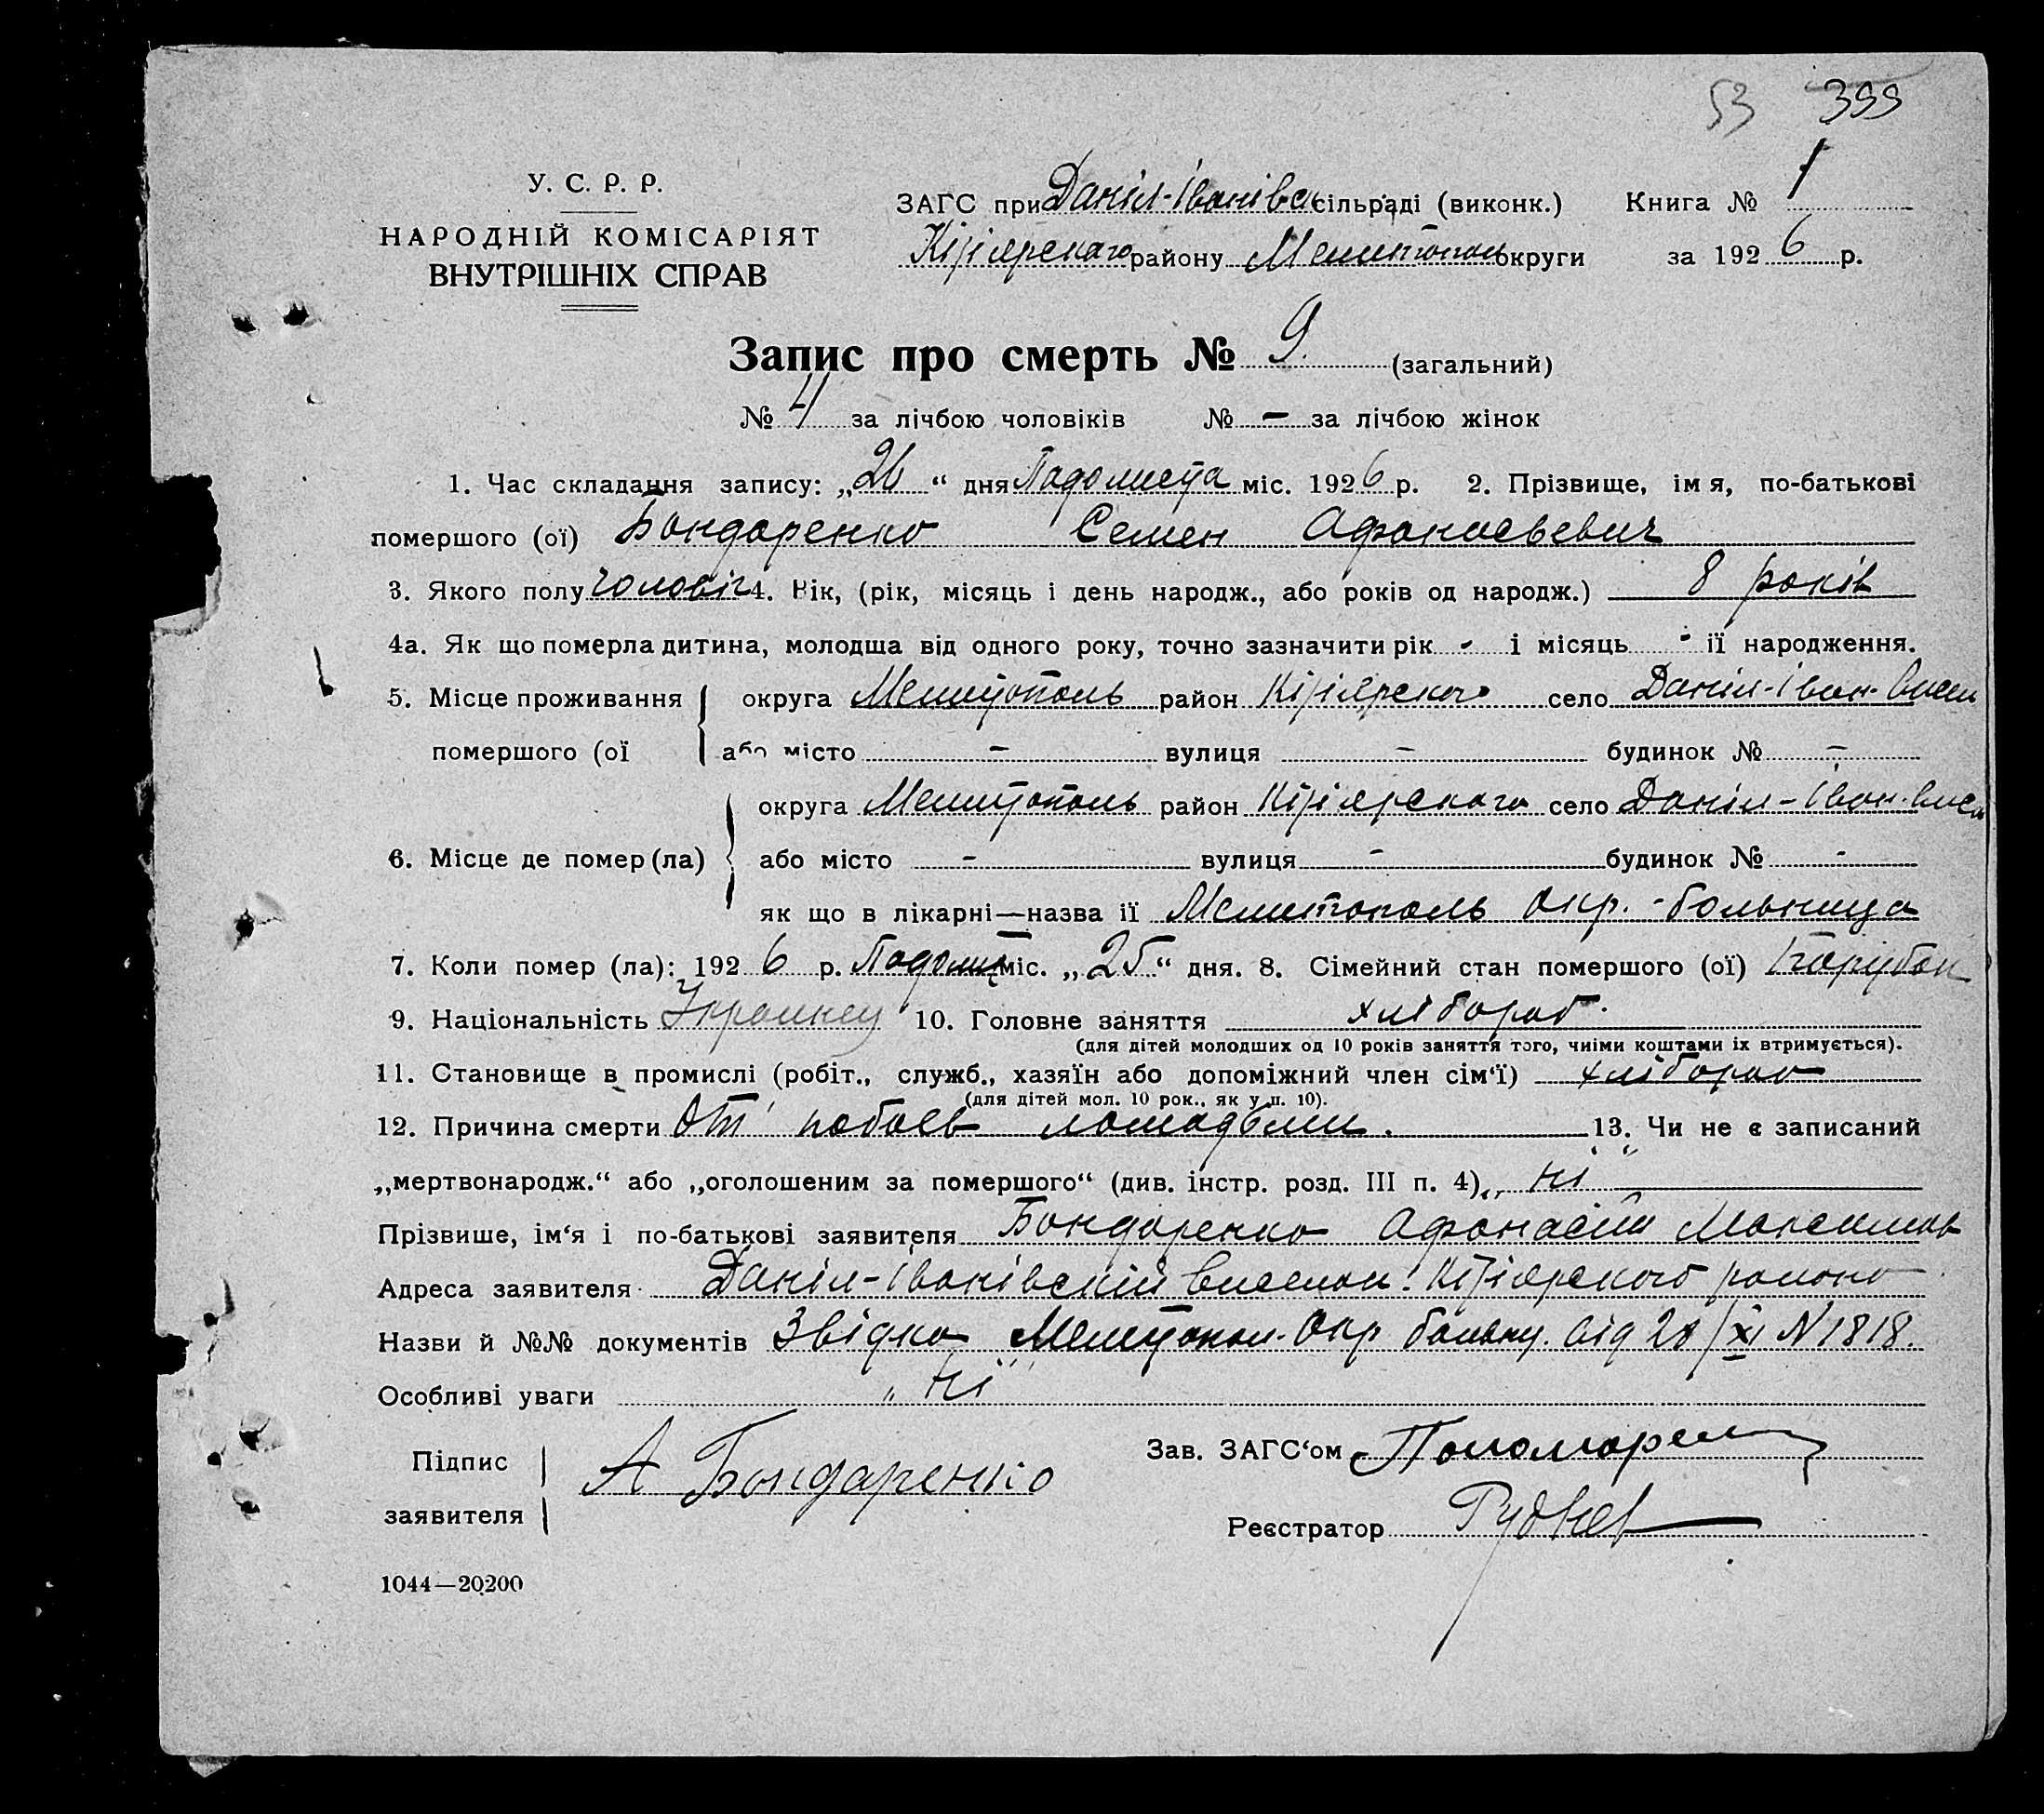 53 399
У. С. Р. Р.
НАРОДНІЙ КОМІСАРІЯТ
ВНУТРІШНІХ СПРАВ
ЗАГС при Даніл-Іванівс сільраді (виконк.) Книга № 1
Кізіярского району Мелитополь округи за 1926 р.
Запис про смерть № 9. (загальний)
№ 4 за лічбою чоловіків № – за лічбою жінок
1. Час складання запису: „26“ дня Падолиста міс. 1926 р. 2. Прізвище, імя, по-батькові
помершого (ої) Бондаренко Семен Афанасьевич
3. Якого полу чоловіч 4. Вік, (рік, місяць і день народж., або років од народж.) 8 років
4а. Як що померла дитина, молодша від одного року, точно зазначити рік - і місяць - її народження.
5. Місце проживання округа Мелитополь район Кізіярского село Даніл-Іван. висел
помершого (ої або місто – вулиця – будинок № –
округа Мелитополь район Кізіярского село Даніл-Іван. висел
6. Місце де помер (ла) або місто - вулиця - будинок № -
як що в лікарні—назва її Мелитополь Окр. больница
7. Коли помер (ла): 1926 р. Падолист міс. „25“ дня. 8. Сімейний стан помершого (ої)
9. Національність Украинец 10. Головне заняття хлібороб.
(для дітей молодших од 10 років заняття того, чиіми коштами їх втримується).
11. Становище в промислі (робіт., служб., хазяїн або допоміжний член сім‘ї) хлібороб
(для дітей мол. 10 рок., як у п. 10).
12. Причина смерти От побоев лошадьми. 13. Чи не є записаний
„мертвонародж.“ або „оголошеним за помершого“ (див. інстр. розд. III п. 4) „Ні“
Прізвише, ім‘я і по-батькові заявителя Бондаренко Афанасий Максимов
Адреса заявителя Даніл-Іванівский виселок. Кізіярского району
Назви й №№ документів Звідка Мелитопол. Окр больниц. від /XI N 1818.
Особливі уваги „Ні“
Підпис
заявителя А Бондаренко
Зав. ЗАГС‘ом
Реєстратор Руднев
1044—20200